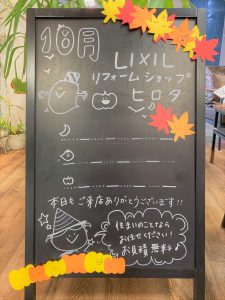 10月
LIXIL
リフォームショップ
ヒロタ
本日もご来店ありがとうございます!!
住まいのことなら
お任せください!
お見積無料♪